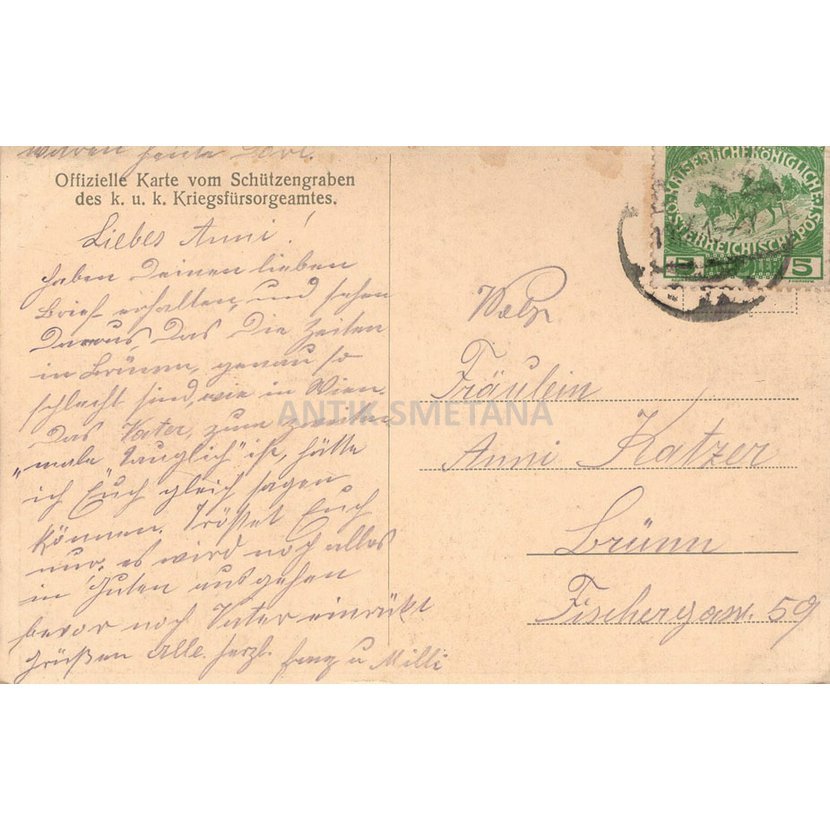 waren heute
Offizielle Karte vom Schützengraben
des k. u. k. Kriegsfürsorgeamtes.
Liebes Anni!
haben Deinen lieben
Brief erhalten, und sehen
Daraus, das die Zeiten
in Brünn, genau so
schlecht sind, wie in Wien.
Das Vater, zum zweiten
"male Tauglich" ist, hätte
ich Euch gleich sagen
können. Tröstet Euch
nur, es wird noch alles
in Guten ausgehen
bevor noch Vater einrückt
Grüßen Alle herzl. u Milli
KAISERLICHE KÖNIGLICHE
ÖSTERREICHISCHE POST
5 5
Fräulein
Anni Katzer
Brünn
Fischergasse 59
ANTIK SMETANA